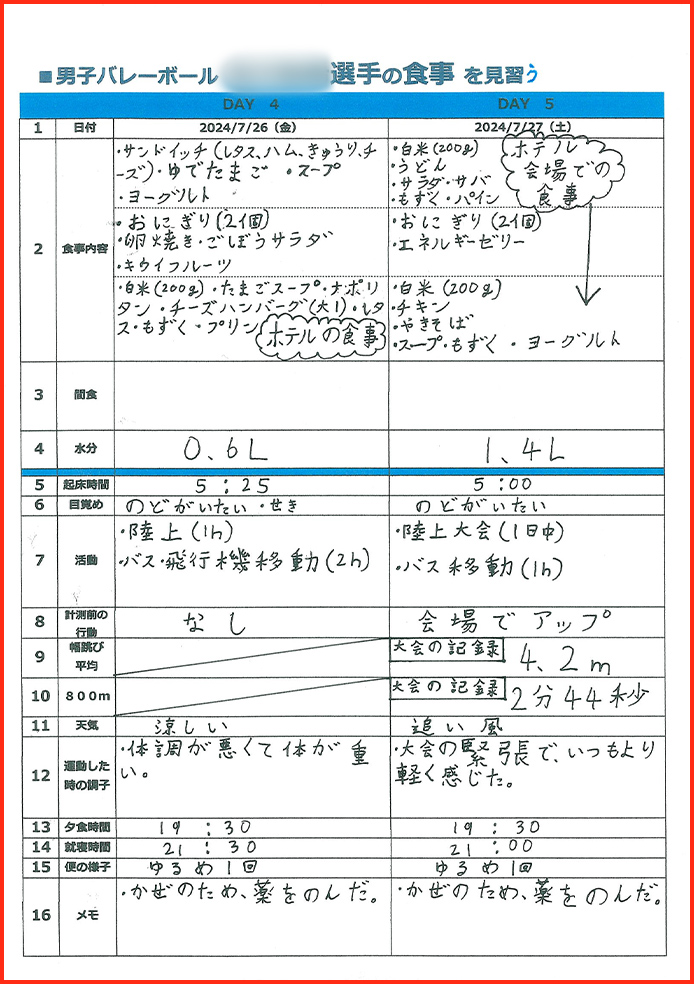 ■男子バレーボール 選手の食事 を見習う
DAY 4 DAY 5
1 日付 2024/7/26(金) 2024/7/27(土)
2 食事内容
・サンドイッチ(レタス、ハム、きゅうり、チ
ーズ)・ゆでたまご ・スープ
・ヨーグルト
・おにぎり(2個)
・卵焼き・ごぼうサラダ
・キウイフルーツ
・白米(200g)・たまごスープ・ナポリ
タン・チーズハンバーグ(大1)・レタ
ス・もずく・プリン
ホテルの食事
・白米(200g)
・うどん
・サラダ・サバ
・もずく・パイン
ホテル
会場での
食事
・おにぎり(2個)
・エネルギーゼリー
・白米(200g)
・チキン
・やきそば
・スープ・もずく ・ヨーグルト
3 間食
4 水分 0.6L 1.4L
5 起床時間 5:25 5:00
6 目覚め のどがいたい・せき のどがいたい
7 活動
・陸上(1h)
・バス・飛行機移動(2h)
・陸上大会(1日中)
・バス移動(1h)
8 計測前の
行動
なし 会場でアップ
9 幅跳び
平均
大会の記録 4.2m
10 800m 大会の記録 2分44秒
11 天気 涼しい 追い風
12 運動した
時の調子
・体調が悪くて体が重
い。
・大会の緊張で、いつもより
軽く感じた。
13 夕食時間 19:30 19:30
14 就寝時間 21:30 21:00
15 便の様子 ゆるめ1回 ゆるめ1回
16 メモ ・かぜのため、薬をのんだ。 ・かぜのため、薬をのんだ。